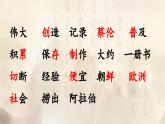 伟大 创造 记录 蔡伦 普及
积累 保存 制作 大约 一册书
切断 经验 便宜 朝鲜 欧洲
社会 捞出 阿拉伯